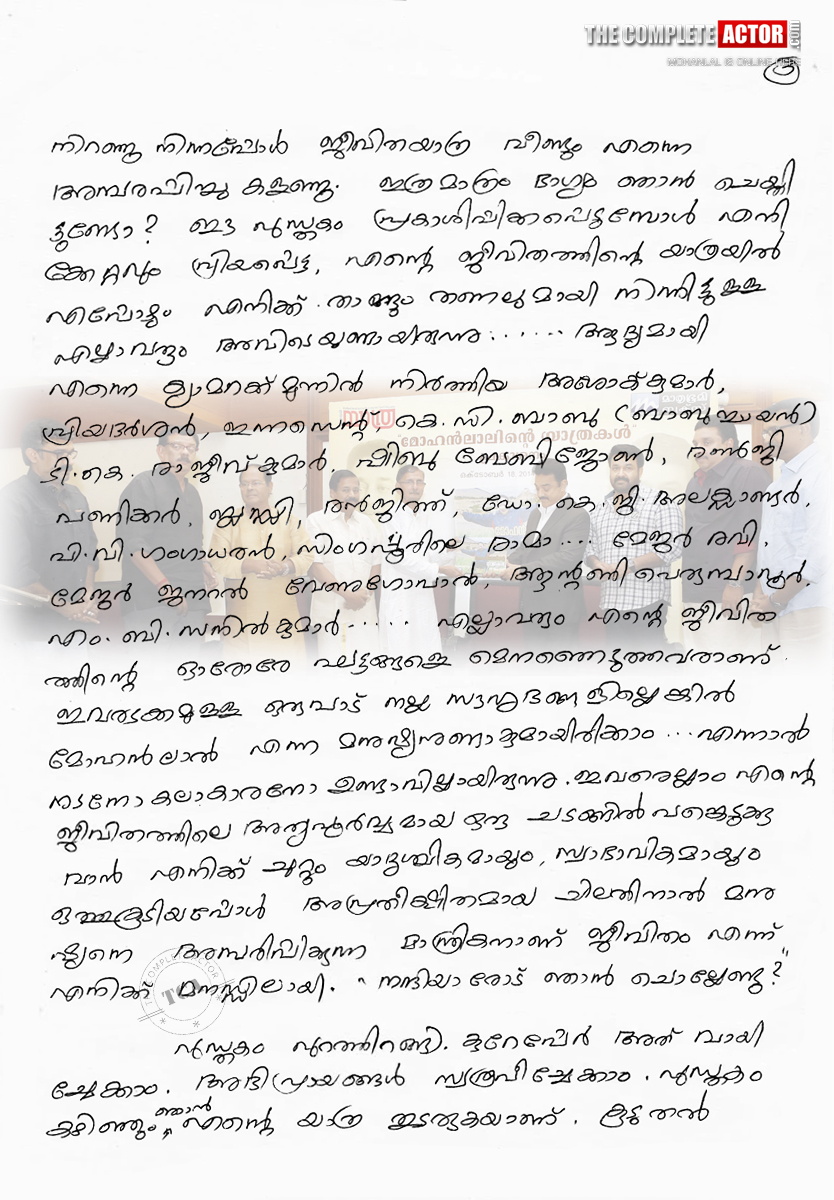 THE COMPLETE ACTOR .com
MOHANLAL IS ONLINE HERE
3
നിറഞ്ഞു നിന്നപ്പോൾ ജീവിതയാത്ര വീണ്ടും എന്നെ
അമ്പരപ്പിച്ചു കളഞ്ഞു. ഇത്രമാത്രം ഭാഗ്യം ഞാൻ ചെയ്തി
ട്ടുണ്ടോ? ഈ പുസ്തകം പ്രകാശിപ്പിക്കപ്പെടുമ്പോൾ എനി
ക്കേറ്റവും പ്രിയപ്പെട്ട, എന്റെ ജീവിതത്തിന്റെ യാത്രയിൽ
എപ്പോഴും എനിക്ക് താങ്ങും തണലുമായി നിന്നിട്ടുള്ള
എല്ലാവരും അവിടെയുണ്ടായിരുന്നു...... ആദ്യമായി
എന്നെ ക്യാമറക്ക് മുന്നിൽ നിർത്തിയ അശോക്കുമാർ,
പ്രിയദർശൻ, ഇന്നസെന്റ് കെ.സി.ബാബു (ബാബുച്ചായൻ)
ടി.കെ. രാജീവ്കുമാർ, ഷിബു ബേബിജോൺ, രൺജി
പണിക്കർ, ബ്ലസ്സി, രൻജിത്ത്, ഡോ.കെ.ജി.അലക്സാണ്ടർ,
പി.വി.ഗംഗാധരൻ, സിംഗപ്പൂരിലെ രാമാ... മേജർ രവി,
മേജർ ജനറൽ വേണുഗോപാൽ, ആന്റണി പെരുമ്പാവൂർ,
എം.ബി.സനിൽകുമാർ..... എല്ലാവരും എന്റെ ജീവിത
ത്തിന്റെ ഓരോരോ ഘട്ടങ്ങളെ മെനഞ്ഞെടുത്തവരാണ്.
ഇവരടക്കമുള്ള ഒരുപാട് നല്ല സൗഹൃദങ്ങളില്ലെങ്കിൽ
മോഹൻലാൽ എന്ന മനുഷ്യനുണ്ടാകുമായിരിക്കാം... എന്നാൽ
നടനോ കലാകാരനോ ഉണ്ടാവില്ലായിരുന്നു. ഇവരെല്ലാം എന്റെ
ജീവിതത്തിലെ അത്യപൂർവ്വമായ ഒരു ചടങ്ങിൽ പങ്കെടുക്കു
വാൻ എനിക്ക് ചുറ്റും യാദൃശ്ചികമായും, സ്വാഭാവികമായും
ഒത്തുകൂടിയപ്പോൾ അപ്രതീക്ഷിതമായ ചിലതിനാൽ മനു
ഷ്യനെ അമ്പരിപ്പിക്കുന്ന മാന്ത്രികനാണ് ജീവിതം എന്ന്
എനിക്ക് മനസ്സിലായി. "നന്ദിയാരോട് ഞാൻ ചൊല്ലേണ്ടു?"
പുസ്തകം പുറത്തിറങ്ങി. കുറേപ്പേർ അത് വായി
ച്ചേക്കാം. അഭിപ്രായങ്ങൾ സ്വരൂപിച്ചേക്കാം. പുസ്തകം
കഴിഞ്ഞും ഞാൻ എന്റെ യാത്ര തുടരുകയാണ്. കൂടുതൽ
"മോഹൻലാലിന്റെ യാത്രകൾ"
യാത്ര
മാതൃഭൂമി
THE COMPLETE ACTOR